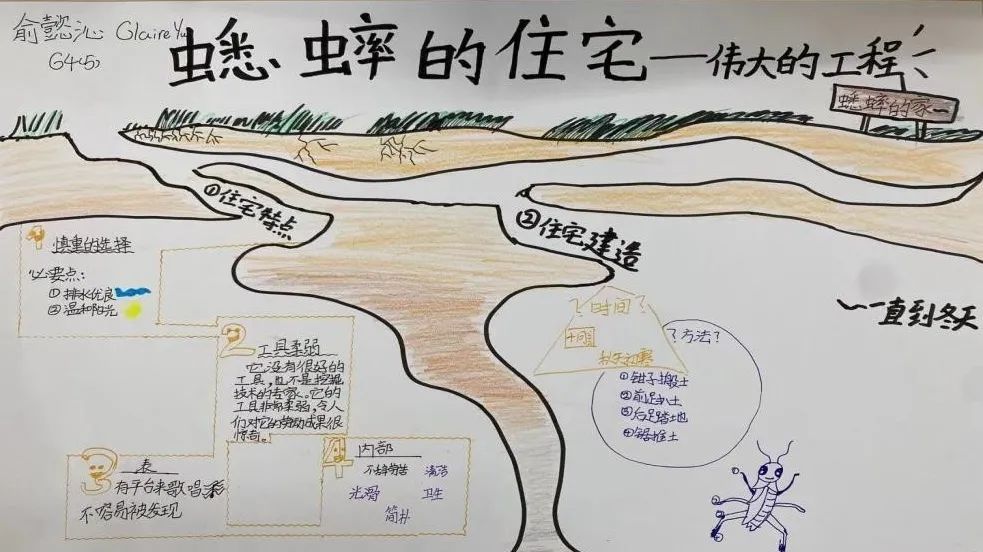 俞懿沁 Claire Yu
6(4)5)
蟋蟀的住宅——伟大的工程
蟋蟀的家
①住宅特点
②住宅建造
1 慎重的选择
必要点:
①排水优良
②温和阳光
2 工具柔弱
它没有很好的
工具,也不是挖掘
技术的专家。它的
工具非常柔弱,令人
们对它的劳动成果很
惊奇。
3 表
有平台来歌唱
不容易被发现
4 内部
清洁
光滑
卫生
简朴
?时间?
十月
秋天初寒
?方法?
①钳子搬土
②前足扒土
③后足踏地
④锯推土
一直到冬天